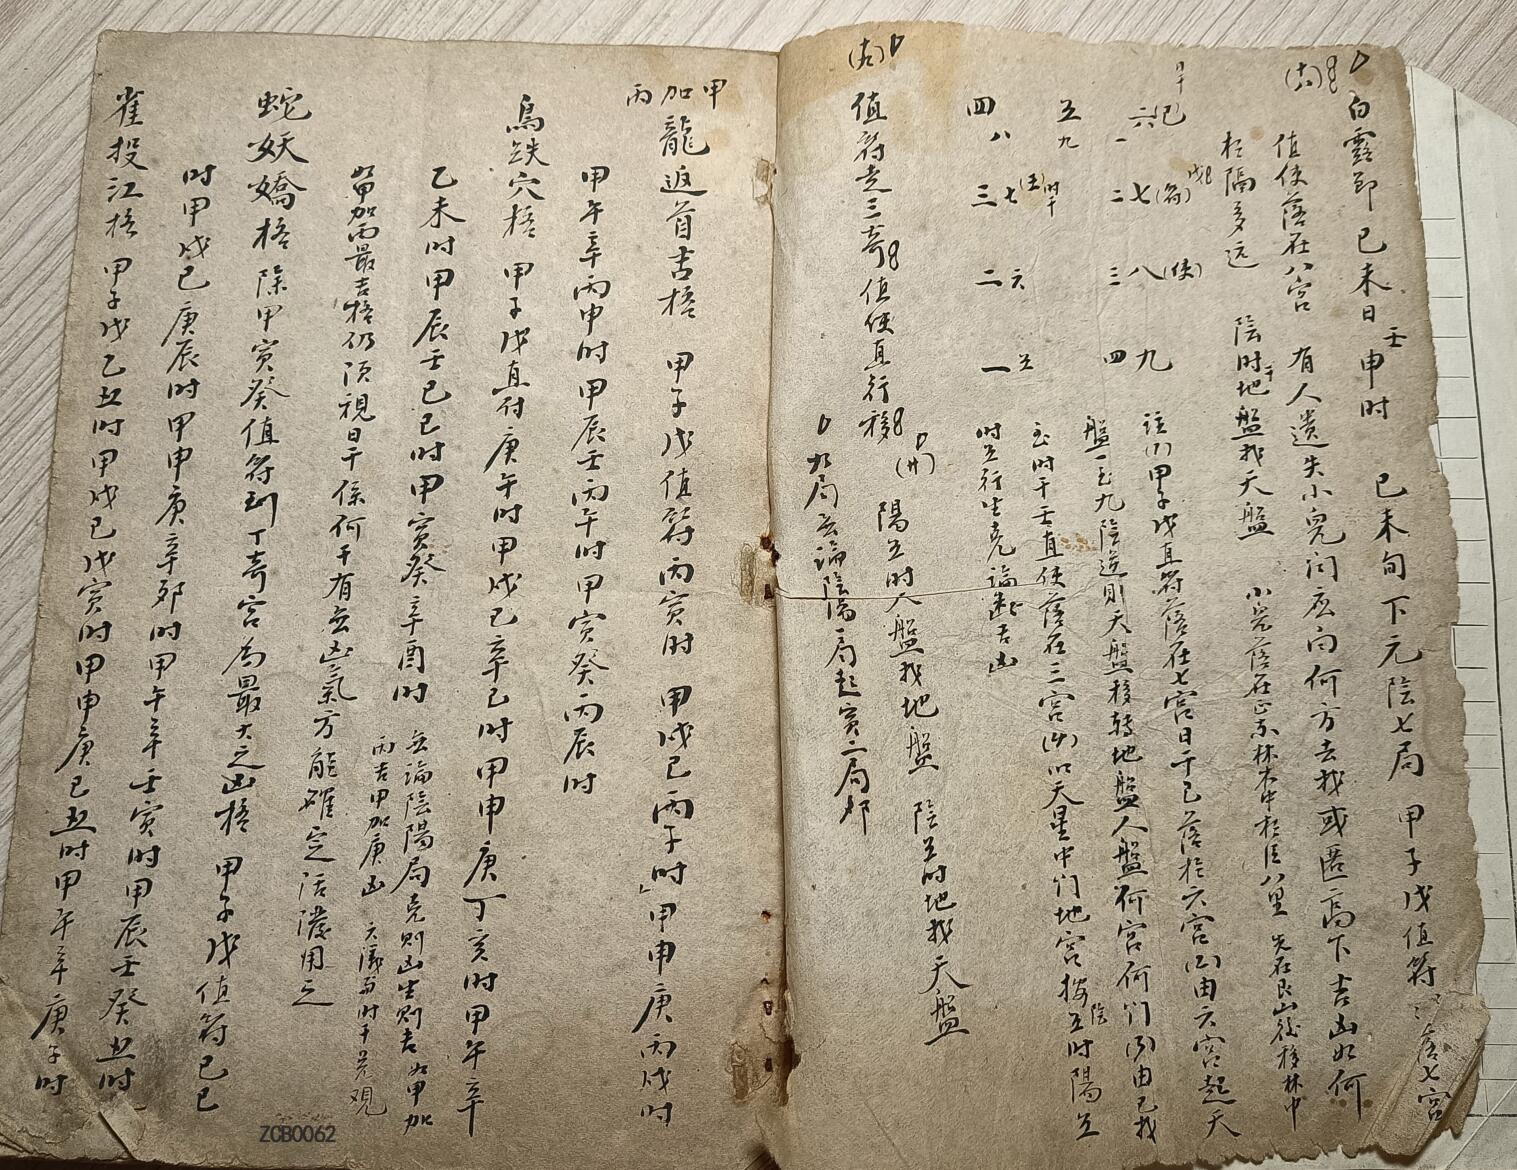 白露節己未日壬申时　己未旬下元陰七局　甲子戊值符落七宮
值使落在八宮　有人遺失小兒问应向何方去找或匿高下吉凶如何
相隔多远　陰时干地盤找天盤　小兒落在正东林木中相隔八里　先在艮山後移林中
日干
己六　戊七(符)　八(使)　九
一　二　三　四
註(1)甲子戊直符落在七宮日干己落於六宮(2)由六宮起天
盤一至九陰逆則天盤移轉地盤人盤何宮何们(3)由己找
五　四　三　二　一
九　八　七(壬)时干　六　五
出时干壬直使落在三宮(4)以天星中们地宮按五时陽
时五行生克論断吉凶
(廿)陽五时人盤找地盤　陰五时地找天盤
(十五)
值符走三奇　值使直行移
九局云論陰陽一局起寅二局卯
甲加丙　龍返首吉格　甲子戊值符丙寅时　甲戌己丙子时　甲申庚丙戌时
甲午辛丙申时　甲辰壬丙午时　甲寅癸丙辰时
鳥跌穴格　甲子戊直符庚午时　甲戌己辛巳时　甲申庚丁亥时　甲午辛
乙未时　甲辰壬己巳时　甲寅癸辛酉时　云論陰陽局克則凶生則吉如甲加
丙吉甲加庚凶　六儀与时干若观
如甲加丙最吉格仍须視日干係何干有云凶氣方能確定活潑用之
蛇妖嬌格　除甲寅癸值符到丁奇宮為最大之凶格　甲子戊值符己巳
时甲戌己庚辰时甲申庚辛卯时甲午辛壬寅时甲辰壬癸丑时
雀投江格　甲子戊乙丑时甲戌己戊寅时甲申庚己丑时甲午辛庚子时
ZCB0062